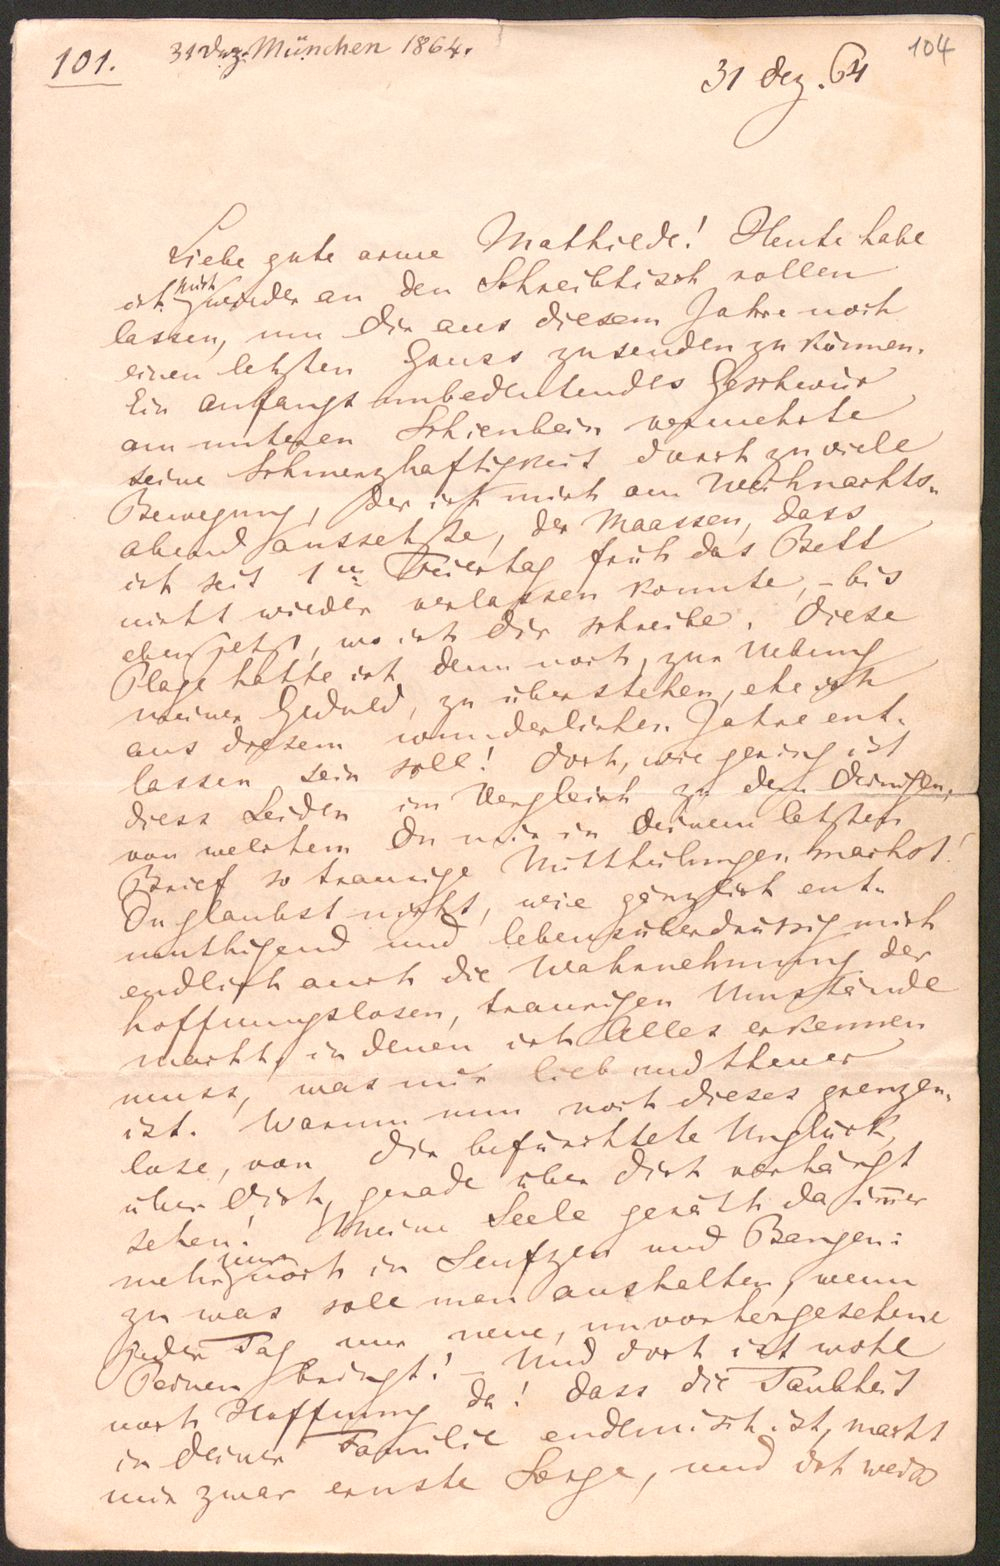 101.
31 Dez. München 1864.
104
31 Dez. 64
Liebe gute arme Mathilde! Heute habe
ich mich wieder an den Schreibtisch rollen
lassen, um Dir aus diesem Jahre noch
einen letzten Gruss zusenden zu können.
Ein anfangs unbedeutendes Geschwür
am unteren Schienbein vermehrte
seine Schmerzhaftigkeit durch zu viele
Bewegung, der ich mich am Weihnachts-
abend aussetzte, der Maassen, dass
ich seit 1n Feiertag früh das Bett
nicht wieder verlassen konnte, – bis
eben jetzt, wo ich Dir schreibe. Diese
Plage hatte ich denn noch, zur Uebung
meiner Geduld, zu überstehen, ehe ich
aus diesem wunderlichen Jahre ent-
lassen sein soll! Doch, wie gering ist
diess Leiden im Vergleich zu dem Deinigen,
von welchem Du mir in Deinem letzten
Brief so traurige Mittheilungen machst!
Du glaubst nicht, wie gänzlich ent-
muthigend und lebensüberdrüssig mich
endlich auch die Wahrnehmung der
hoffnungslosen, traurigen Umstände
macht, in denen ich Alles erkennen
muss, was mir lieb und theuer
ist. Warum nun noch dieses grenzen-
lose, von Dir befürchtete Unglück,
über Dich, gerade über Dich verhängt
sehen! Meine Seele geräth da immer
mehr nur noch in Seufzen und Bangen:
zu was soll man aushalten, wenn
jeder Tag nur neue, unvorhergesehene
Peinen bringt! – Und doch ist wohl
noch Hoffnung da! Dass die Taubheit
in Deiner Familie endemisch ist, macht
mir zwar ernste Sorge, und ich weiss